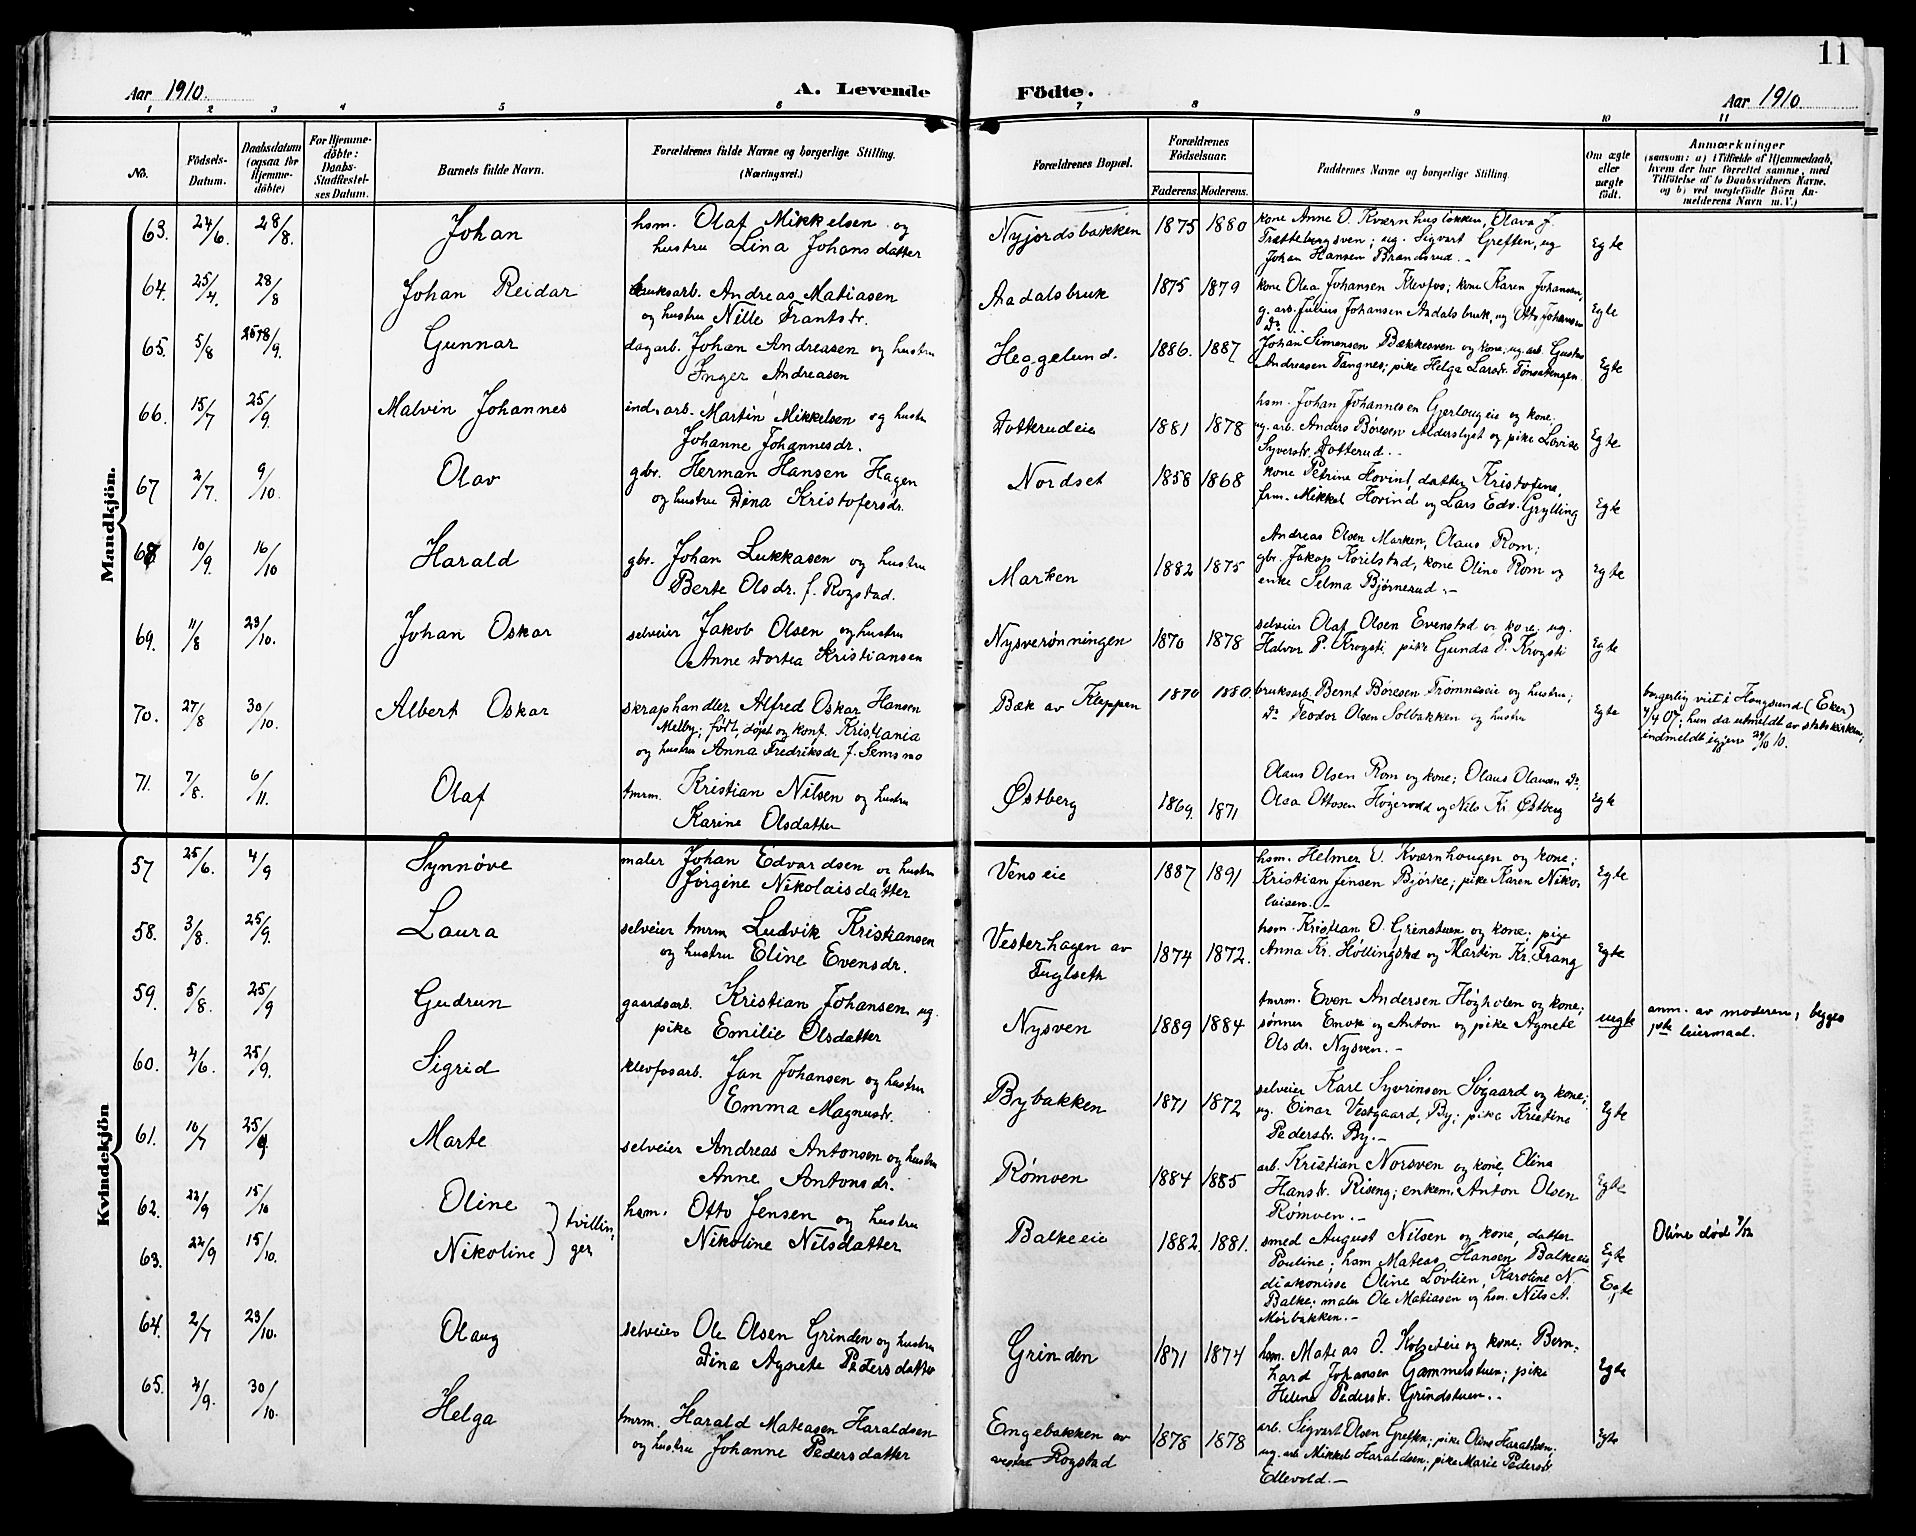 11
Aar 1910. A. Levende Födte. Aar 1910
1 2 3 4 5 6 7 8 9 10 11
No.
Födsels-
Datum.
Daabsdatum
(ogsaa for
Hjemme-
döbte)
For Hjemme-
döbte:
Daabs-
Stadfæstel-
ses Datum.
Barnets fulde Navn.
Forældrenes fulde Navne og borgerlige Stilling.
(Næringsvei.)
Forældrenes Bopæl.
Forældrenes
Födselsaar.
Faderens. Moderens.
Faddernes Navne og borgerlige Stilling.
Om ægte
eller
uægte
födt.
Anmærkninger
(saasom: a) i Tilfælde af Hjemmedaab,
hvem der har forrettet samme, med
Tilföielse af to Daabsvidners Navne.
og b) ved uegtefödte Börn An-
melderens Navn m. V.)
Mandkjön.
63. 24/6. 28/8. Johan hsm. Olaf Mikkelsen og
hustru Lina Johansdatter
Nyjordsbakken 1875 1880 kone Anne O. Kværnhusløkken, Olava J.
Trætteb​ergsven; ug. Sigvart Greften, ug
Johan Hansen Brandsrud. -
Egte
64. 25/4. 28/8 Johan Reidar bruksarb. Andreas Matiasen
og hustru Nille Frantsdr.
Aadalsbruk 1875 1879 kone Olea Johansen Klevfos; kone Karen Johansen,
g. arb. Julius Johansen Aadalsbruk, ug Otto Johansen
Do
Egte
65. 5/8 25/9. Gunnar dagarb. Johan Andreasen og hustru
Inger Andreasen
Heggelund. 1886. 1887 Johan Simensen Bækkesven og kone, ug. arb. Gustav
Andreasen Tangnes; pike Helga Larsdr. Tønsetengen
Egte
66. 15/7 25/9. Malvin Johannes inds. arb. Martin Mikkelsen og hustru
Johanne Johannesdr.
Dotterudeie 1881 1878 hsm. Johan Johannesen Gjerlougeie og kone.
ug. arb. Anders Børesen Alderslyst og pike Lovise
Syversdr. Dotterud. -
Egte
67 2/7. 9/10. Olav gbr. Herman Hansen Hagen
og hustru Dina Kristofersdr.
Nordset 1858 1868 kone Petrine Hovind, datter Kristofine,
frm. Mikkel Hovind og Lars Edv. Grylling
Egte
68 10/9. 16/10 Harald gbr. Johan Lukkasen og hustru
Berte Olsdr. f. Rogstad.
Marken 1882 1875 Andreas Olsen Marken, Olaus Rom;
gbr. Jakop Korilstad, kone Oline Rom og
enke Selma Bjørnerud. -
Egte
69. 11/8 23/10. Johan Oskar selveier Jakob Olsen og hustru
Anne Dortea Kristiansen
Nysverønningen 1870 1878 selveier Olaf Olsen Evenstad og kone; ug.
Halvor P. Krogsti, pike Gunda P. Krogsti
Egte
70. 27/8 30/10. Albert Oskar skraphandler Alfred Oskar Hansen
Melby; født, døpt og konf. Kristiania
og hustru Anna Fredriksdr f. Semsmo
Bæk av Kleppen 1870 1880. bruksarb. Bernt Børesen Trømneseie og hustru;
Do Teodor Olsen Solbakken og hustru
Egte
borgerlig viet i Hougsund (Eker)
4/4 07; hun da utmeldt av statskirken;
indmeldt igjen 29/10 10.
71. 7/8. 6/11. Olaf tmrm. Kristian Nilsen og hustru
Karine Olsdatter
Østberg 1869. 1871 Olaus Olsen Rom og kone; Olaus Olausen Do.
Olea Ottosen Høgevold og Nils Kr. Østberg
Egte
Kvindekjön
57 25/6. 4/9 Synnøve maler Johan Edvardsen og hustru
Jørgine Nikolaisdatter
Venseie 1887 1891 hsm. Helmer O. Kværnhaugen og kone;
Kristian Jensen Bjørke; pike Karen Niko-
laisen. -
Egte
58. 3/8. 25/9. Laura selveier tmrm Ludvik Kristiansen
og hustru Eline Evensdr.
Vesterhagen av
Fuglseth
1874 1872. hsm. Kristian O. Grinstuen og kone; pige
Anna Kr. Høllingstad og Martin Kr. Frang
Egte
59. 5/8. 25/9 Gudrun gaardsarb. Kristian Johansen, ug.
pike Emilie Olsdatter
Nysven 1889 1884 tmrm. Even Andersen Høgholen og kone;
sønner Emok og Anton og pike Agnete
Olsdr. Nysven. -
uegte
anm. av moderen; begges
1ste leiermaal.
60. 4/6. 25/9. Sigrid klevfosarb. Jan Johansen og hustru
Emma Magnusdr.
Bybakken 1871 1872 selveier Karl Syvrinsen Søgaard og kone;
ug. Einar Vestgaard, By; pike Kristine
Pedersdr. By. -
Egte
61. 10/7 25/9 Marte selveier Andreas Antonsen og hustru
Anne Antonsdr.
Rømven 1884 1885 arb. Kristian Norsven og kone, Olina
Hansdr. Riseng; enkem. Anton Olsen
Rømven. -
Egte
62. 22/9 15/10 Oline
63. 22/9 15/10. Nikoline } tvillin-
ger
hsm. Otto Jensen og hustru
Nikoline Nilsdatter
Balkeeie 1882. 1881. smed August Nilsen og kone, datter
Pauline; hsm Mateas Hansen Balkeeie
diakonisse Oline Løvlien, Karoline N.
Balke; maler Ole Matiasen og hsm. Nils A.
Mørbakken. -
Egte
Egte
Oline død 7/12
64. 2/7 23/10. Olaug selveier Ole Olsen Grinden og hustru
Dina Agnete Pedersdatter
Grinden 1871 1874 hsm. Mateas O. Kolseteie og kone; Bern-
hard Johansen Gammelstuen; pike
Helene Pedersdr. Grindstuen. -
Egte
65. 4/9. 30/10. Helga tmrm. Harald Mateasen Haraldsen
og hustru Johanne Pedersdatter
Engebakken av
vestre Rogstad
1878 1878 arb. Sigvart Olsen Greften; pike Oline Haraldsen;
ug. arb. Mikkel Haraldsen; pike Marie Pedersdr.
Ellevold. -
Egte